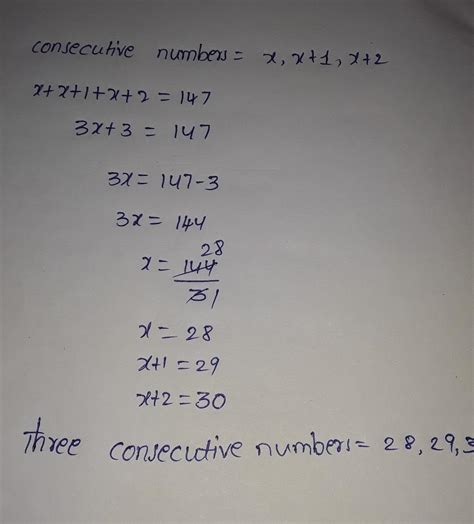 consecutive numbers = x, x+1, x+2
x+x+1+x+2 = 147
3x+3 = 147
3x = 147-3
3x = 144
28
x = 144
31
x = 28
x+1 = 29
x+2 = 30
Three consecutive numbers = 28, 29, 3